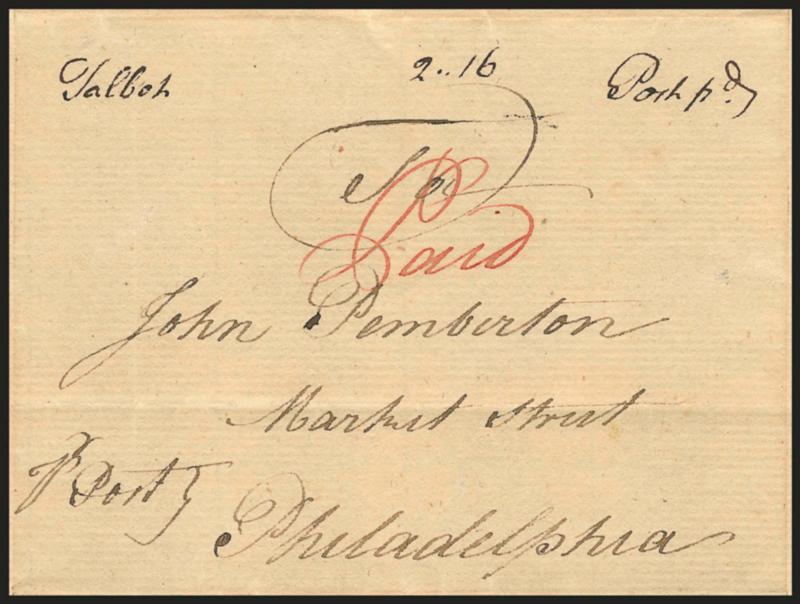 Talbot 2..16 Post pd.
To
Paid
John Pemberton
Market Street
pr Post
Philadelphia